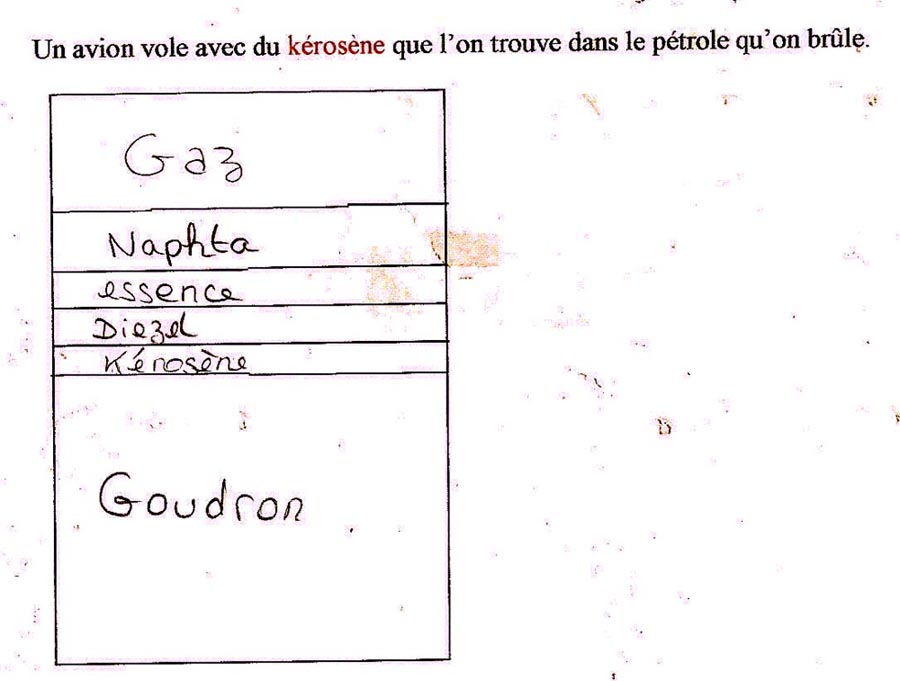 Un avion vole avec du kérosène que l'on trouve dans le pétrole qu'on brûle.
Gaz
Naphta
essence
Diezel
Kérosène
Goudron